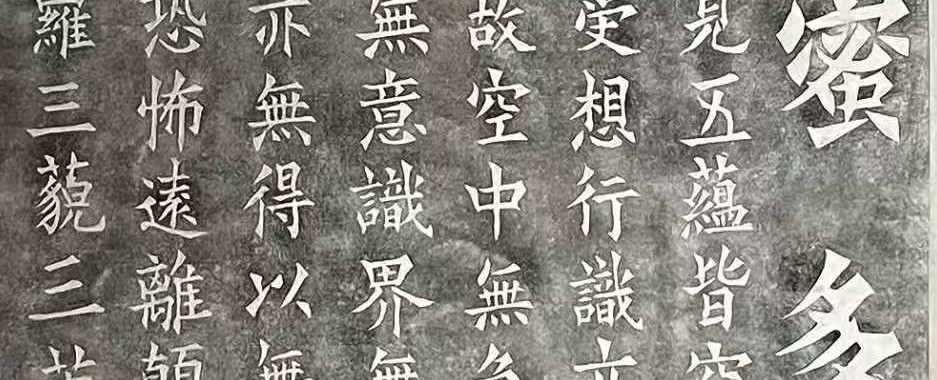 蜜多
見五蘊皆空
受想行識亦
故空中無色
無意識界無
亦無得以無
恐怖遠離顛
羅三藐三菩